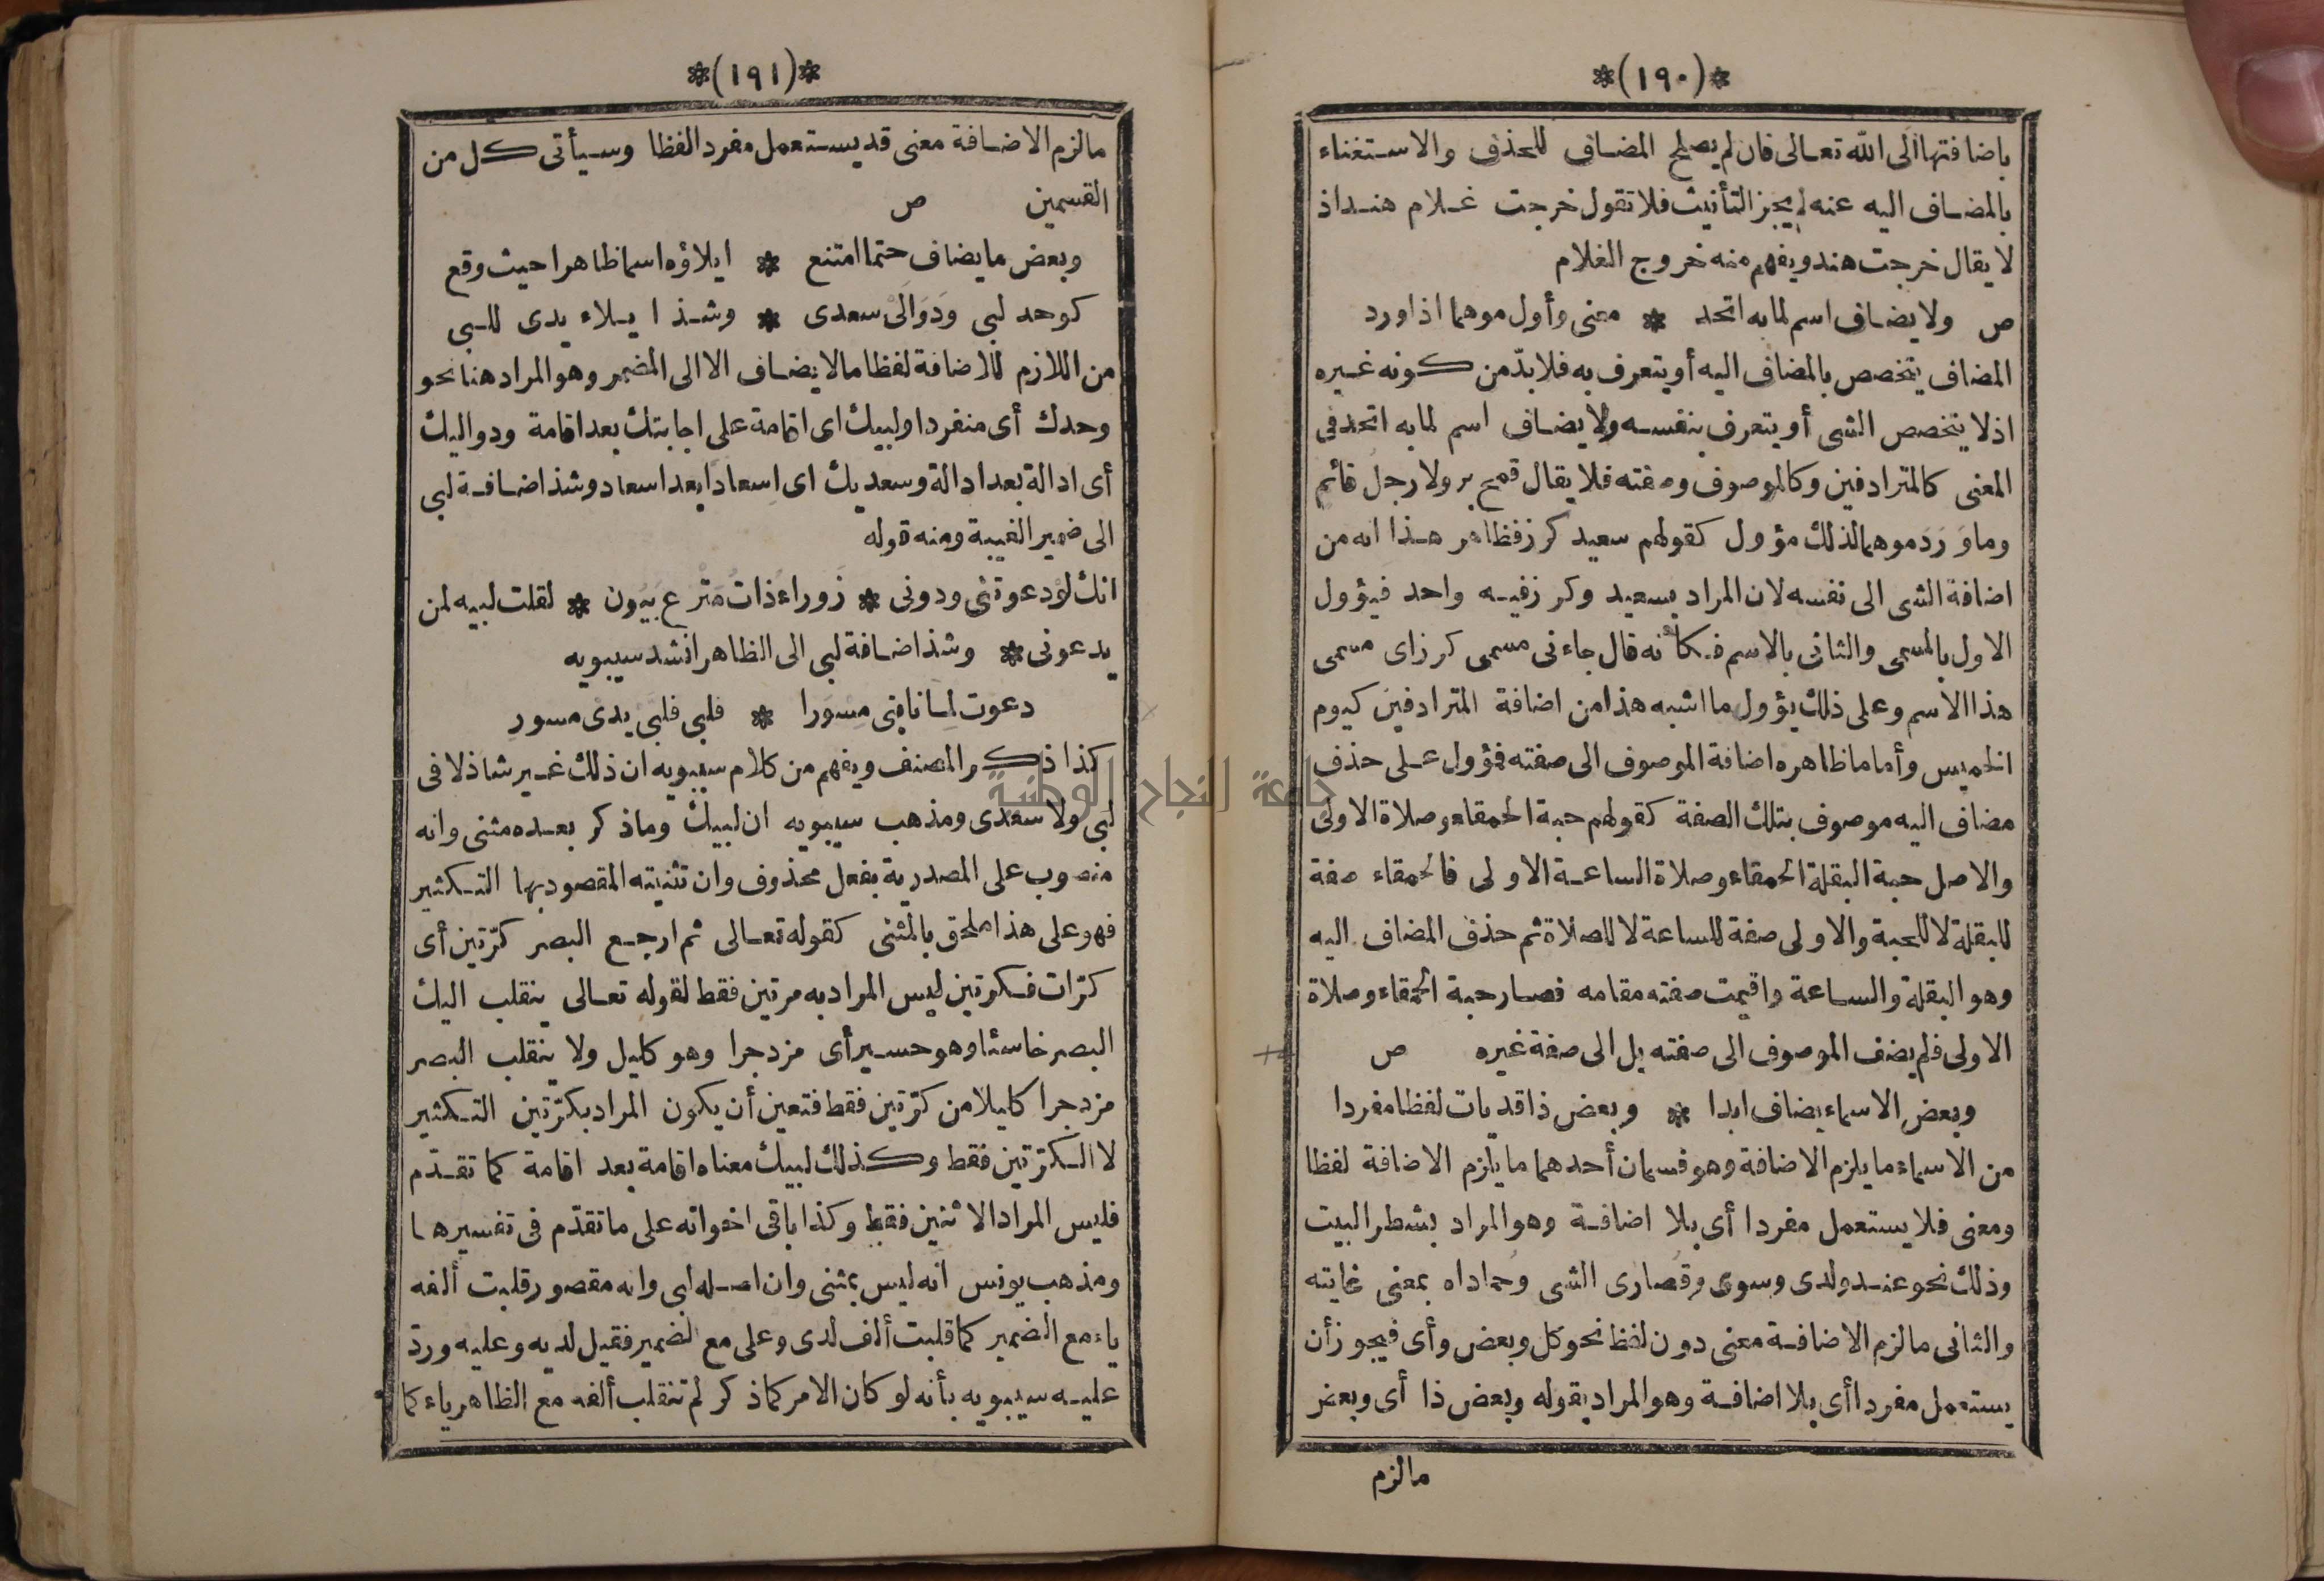 *(١٩٠)*
باضافتها الى الله تعالى فان لم يصلح المضاف للحذف والاستغناء
بالمضاف اليه عنه لم يجز التأنيث فلا تقول خرجت غلام هند اذ
لا يقال خرجت هند ويفهم منه خروج الغلام
ص ولا يضاف اسم لما به اتحد * معنى وأول موهما اذا ورد
المضاف يتخصص بالمضاف اليه أو يتعرف به فلا بدّ من كونه غيره
اذ لا يتخصص الشئ أو يتعرف بنفسه ولا يضاف اسم لما به اتحد فى
المعنى كالمترادفين وكالموصوف وصفته فلا يقال قمح بر ولا رجل قائم
وما وَرَدَ موهما لذلك مؤول كقولهم سعيد كرز فظاهر هذا انه من
اضافة الشئ الى نفسه لان المراد بسعيد وكرز فيه واحد فيؤول
الاول بالمسمى والثانى بالاسم فكأنه قال جاءنى مسمى كرز اى مسمى
هذا الاسم وعلى ذلك يؤول ما اشبه هذا من اضافة المترادفين كيوم
الخميس وأما ما ظاهره اضافة الموصوف الى صفته فمؤول على حذف
مضاف اليه موصوف بتلك الصفة كقولهم حبة الحمقاء وصلاة الاولى
والاصل حبة البقلة الحمقاء وصلاة الساعة الاولى فالحمقاء صفة
للبقلة لا للحبة والاولى صفة للساعة لا للصلاة ثم حذف المضاف اليه
وهو البقلة والساعة واقيمت صفته مقامه فصار حبة الحمقاء وصلاة
الاولى فلم يضف الموصوف الى صفته بل الى صفة غيره ص
وبعض الاسماء يضاف ابدا * وبعض ذا قد يات لفظا مفردا
من الاسماء ما يلزم الاضافة وهو قسمان أحدهما ما يلزم الاضافة لفظا
ومعنى فلا يستعمل مفردا أى بلا اضافة وهو المراد بشطر البيت
وذلك نحو عند ولدى وسوى وقُصارى الشئ وحُماداه بمعنى غايته
والثانى ما لزم الاضافة معنى دون لفظ نحو كل وبعض وأى فيجوز أن
يستعمل مفردا أى بلا اضافة وهو المراد بقوله وبعض ذا أى وبعض
ما لزم
*(١٩١)*
ما لزم الاضافة معنى قد يستعمل مفردا لفظا وسيأتى كل من
القسمين ص
وبعض ما يضاف حتما امتنع * ايلاؤه اسما ظاهرا حيث وقع
كوحد لبى وَدَوَالَىْ سعدى * وشذ ايلاء يدى للبى
من اللازم للاضافة لفظا ما لا يضاف الا الى المضمر وهو المراد هنا نحو
وحدك أى منفردا ولبيك اى اقامة على اجابتك بعد اقامة ودواليك
أى ادالة بعد ادالة وسعديك اى اسعادًا بعد اسعاد وشذ اضافة لبى
الى ضمير الغيبة ومنه قوله
انك لوْ دعوتنى ودونى * زَوراء ذات مَتْرع بَيُون * لقلت لبيه لمن
يدعونى * وشذ اضافة لبى الى الظاهر انشد سيبويه
دعوت لما نابنى مِسوَرا * فلبى فلبَى يدى مسور
كذا ذكر المصنف ويفهم من كلام سيبويه ان ذلك غير شاذ لا فى
لبى ولا سعدى ومذهب سيبويه ان لبيك وما ذكر بعده مثنى وانه
منصوب على المصدرية بفعل محذوف وان تثنيته المقصود بها التكثير
فهو على هذا ملحق بالمثنى كقوله تعالى ثم ارجع البصر كرّتين أى
كرّات فكرتين ليس المراد به مرتين فقط لقوله تعالى ينقلب اليك
البصر خاسئا وهو حسير أى مزدجرا وهو كليل ولا ينقلب البصر
مزدجرا كليلا من كرّتين فقط فتعين أن يكون المراد بكرّتين التكثير
لا الكرّتين فقط وكذلك لبيك معناه اقامة بعد اقامة كما تقدّم
فليس المراد الاثنين فقط وكذا باقى اخواته على ما تقدّم فى تفسيرها
ومذهب يونس انه ليس بمثنى وان اصله لبى وانه مقصور قلبت ألفه
ياء مع الضمير كما قلبت ألف لدى وعلى مع الضمير فقيل لديه وعليه وردّ
عليه سيبويه بأنه لو كان الامر كما ذكر لم تنقلب ألفه مع الظاهر ياء كما
جامعة النجاح الوطنية